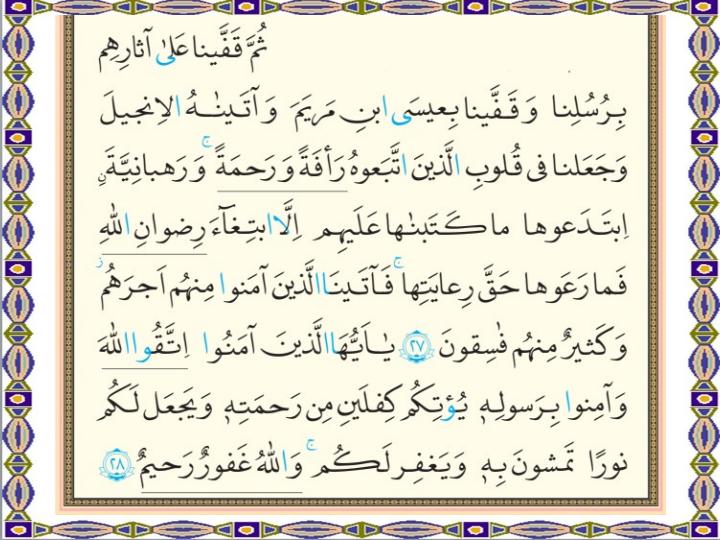 ثُمَّ قَفَّينا عَلىٰ آثارِهِم
بِرُسُلِنا وَ قَفَّينا بِعيسَی ابنِ مَریَمَ وَ آتَینٰـهُ الاِنجیلَ
وَ جَعَلنا فی قُلوبِ الَّذینَ اتَّبَعوهُ رَأفَةً وَ رَحمَةً ۚ وَ رَهبانِیَّةَ ࣙ
اِبتَدَعوها ما کَتَبنٰها عَلَیهِم اِلَّا ابتِغآءَ رِضوانِ اللهِ
فَما رَعَوها حَقَّ رِعایَتِها ۚ فَـآتَینَا الَّذینَ آمَنوا مِنهُم اَجرَهُم ز
وَ کَثیرٌ مِنهُم فٰسِقونَ ﴿٢٧﴾ یٰـاَیُّهَا الَّذینَ آمَنُوا اِتَّقُوا اللهَ
وَ آمِنوا بِرَسولِهٖ یُؤتِکُم کِفلَینِ مِن رَحمَتِهٖ وَ یَجعَل لَکُم
نورًا تَمشونَ بِهٖ وَ یَغفِر لَکُم ۚ وَ اللهُ غَفورٌ رَحیمٌ ﴿٢٨﴾